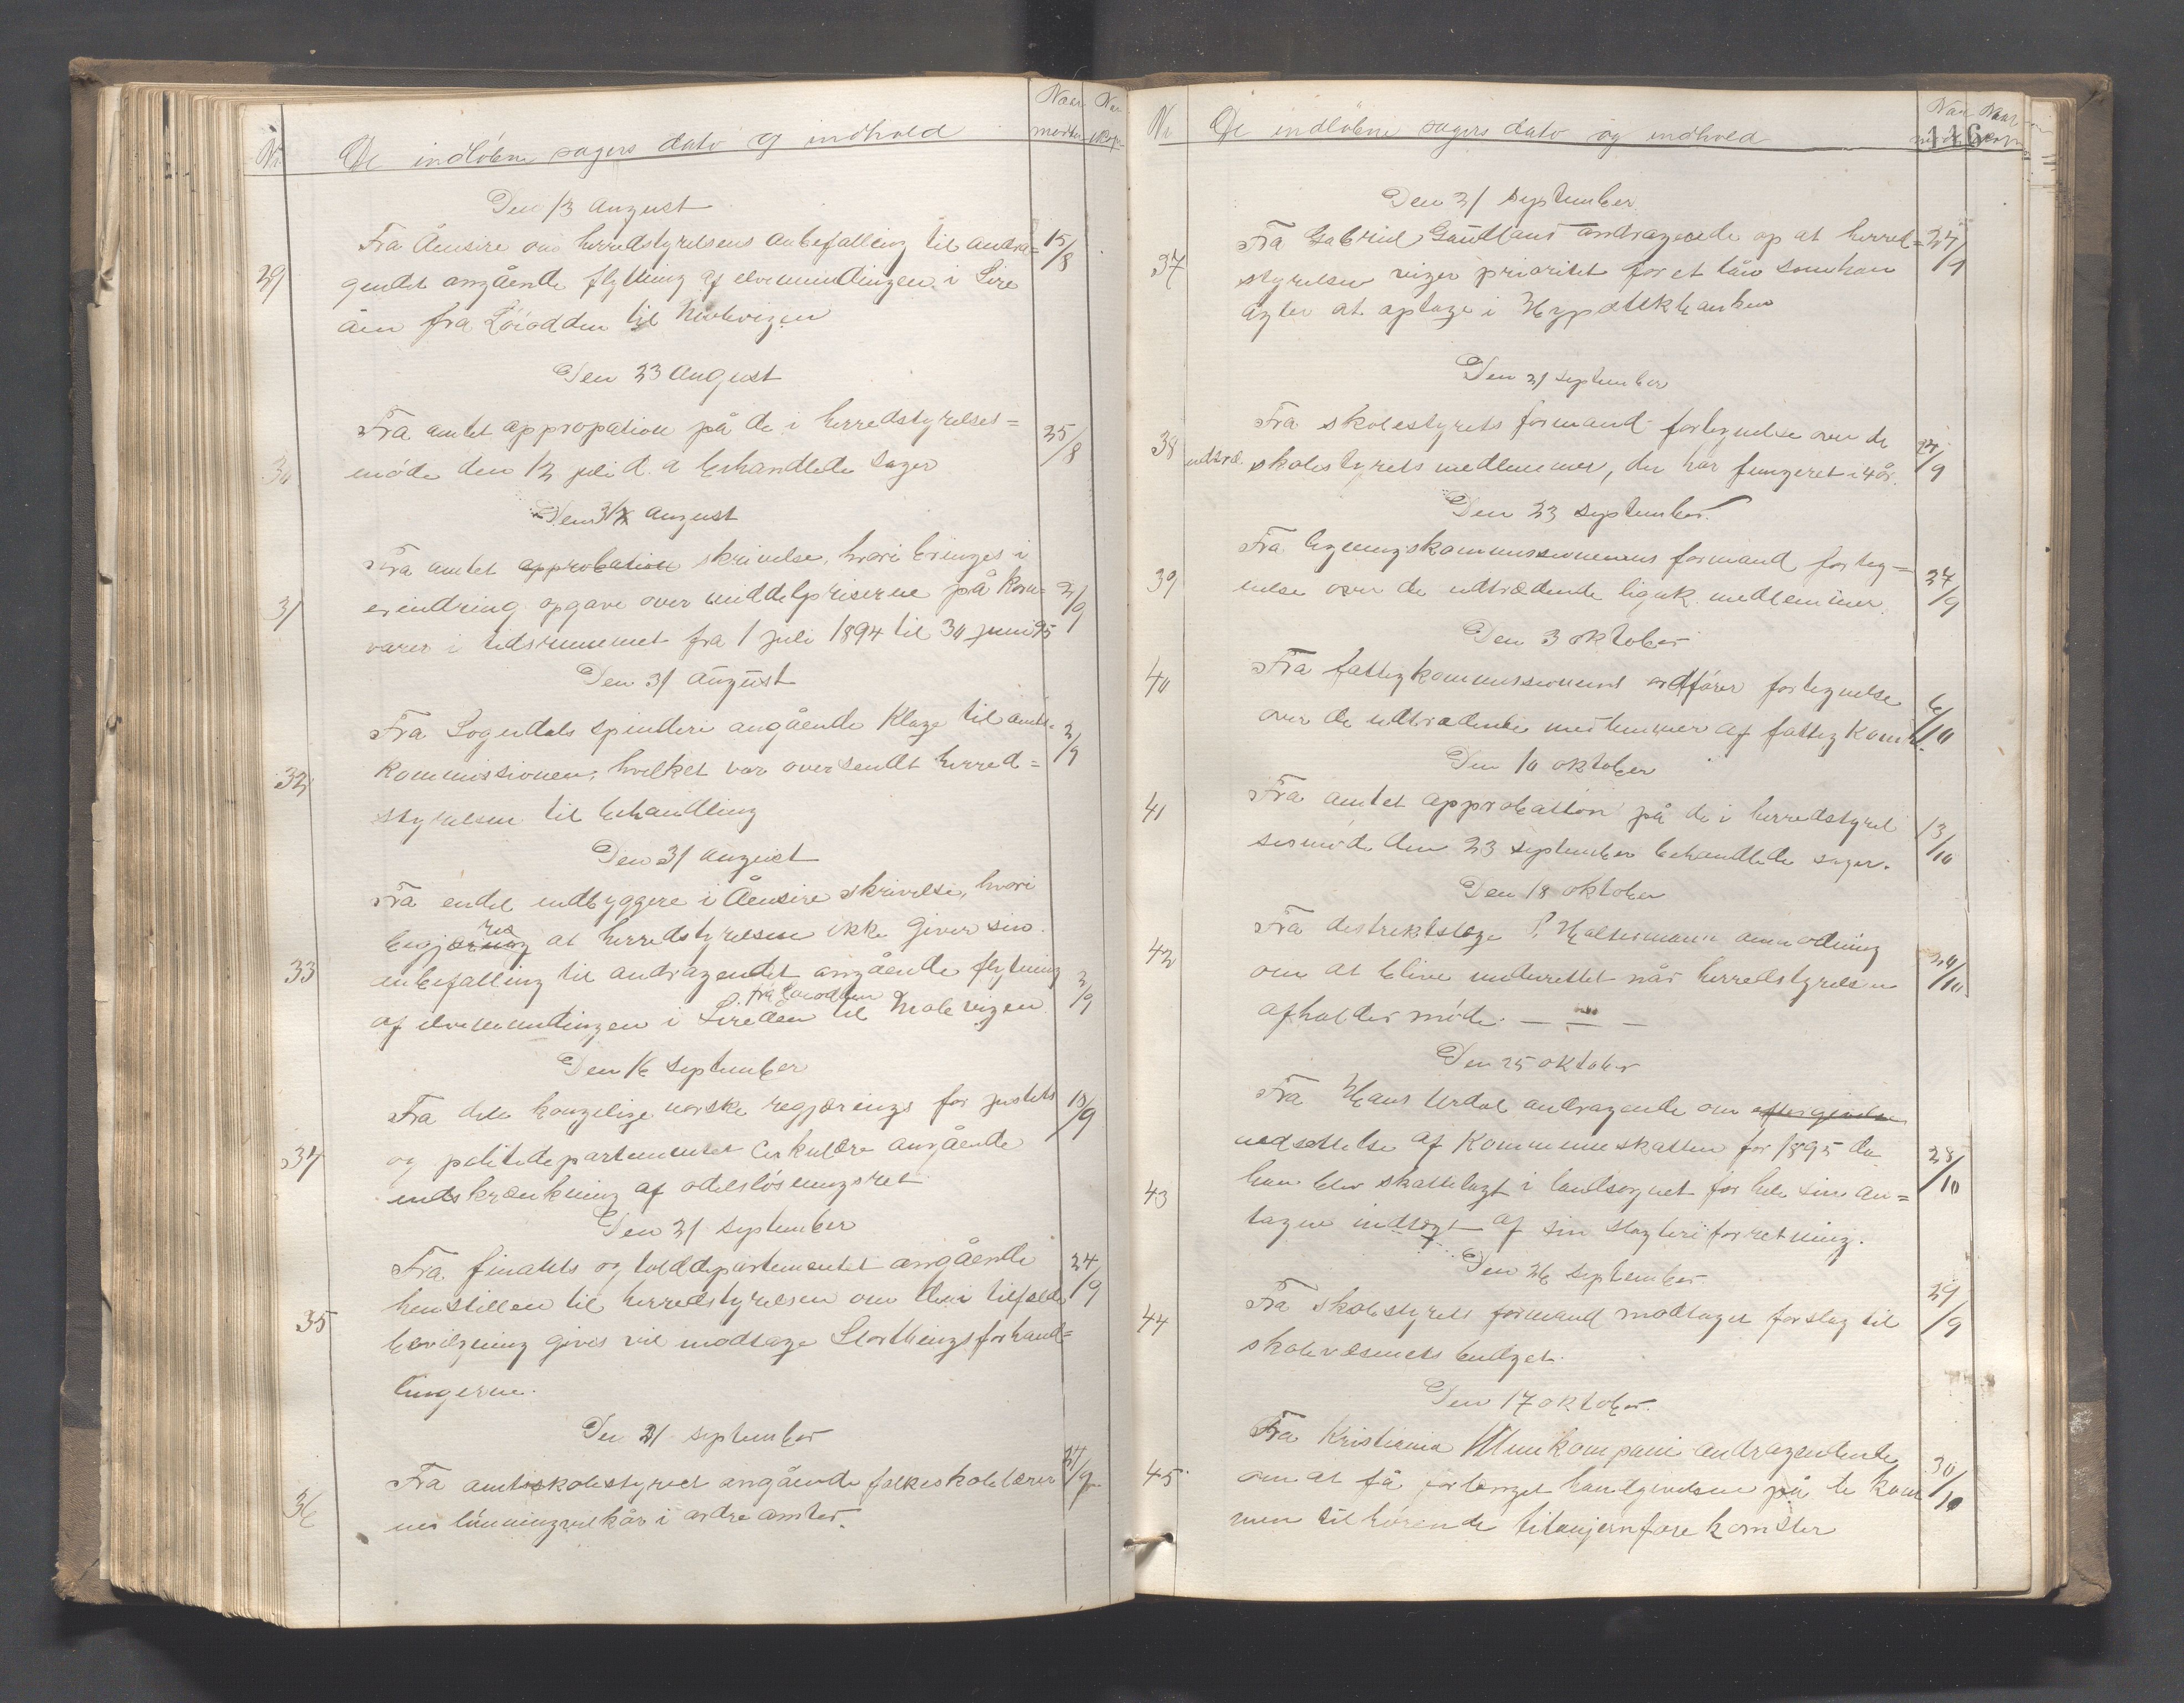 Nr. De indløbne sagers dato og indhold Naar modta. Naar
Den 13 August
Fra Åensire om herredstyrelsens anbefalling til andra= 15/8
29 gendet angående flytning af elvemundingen i Sire
åen fra Løiodden til Molevigen
Den 23 August
Fra amtet appropation på de i herredstyrelses= 25/8
30 møde den 12 juli d. a behandlede sager
Den 31 August
Fra amtet approbation skrivelse, hvori bringes i
31 erindring opgave over middelpriserne på korn= 2/9
varer i tidsrummet fra 1 juli 1894 til 30 juni 95
Den 31 August
Fra Sogndals spinderi angående klage til amts- 2/9
32 kommissionen, hvilket var oversendt herred=
styrelsen til behandling
Den 31 August
Fra endel indbyggere i Åensire skrivelse, hvori
begjæres at herredstyrelsen ikke giver sin
33 anbefalling til andragendet angående flytning 2/9
af elvemundingen i Sireåen fra Løiodden til Molevigen
Den 16 September
Fra det kongelige norske regjerings for justits 18/9
34 og politidepartementet Cirkulære angående
indskrænkning af odelsløsningsret
Den 21 September
Fra finants og tolddepartementet angående 24/9
35 henstillen til herredstyrelsen om den i tilfælde
bevilgning gives vil modtage Storthingsforhand=
lingerne.
Den 21 September
Fra amtskolestyret angående folkeskolelærer 24/9
36 nes lønningsvilkår i andre amter.
Nr De indløbne sagers dato og indhold Naar Naar 116
Den 21 September
Fra Gabriel Gaudland andragende op at herred= 24/9
37 styrelsen viger prioritet for et lån som han
agter at optage i Hypotekbanken
Den 21 September
Fra skolestyrets formand fortegnelse over de
38 udtræ. skolestyrets medlemmer, der har fungeret i 4 år. 24/9
Den 23 September.
Fra ligningskommissionens formand forteg=
39 nelse over de udtrædende lignk. medlemmer. 24/9
Den 3 oktober
40 Fra fattigkommissionens ordfører fortegnelse
over de udtrædende medlemmer af fattigkomis. 6/10
Den 10 oktober
41 Fra amtet approbation på de i herredstyrel 13/10
sesmøde den 23 September behandlede sager.
Den 18 oktober
Fra destriktslæge P. Holtermann anmodning
42 om at blive underrettet når herredstyrelsen 24/10
afholder møde. — — —
Den 25 oktober
Fra Hans Urdal andragende om eftergivelse
nedsettelse af Kommuneskatten for 1895 da 28/10
43 han blev skattelagt i landsognet for hele sin an=
tagne indtægt af sin slagteriforretning.
Den 26 September.
44 Fra Skolestyrets formand modtaget forslag til 29/9
skolevæsenets budget.
Den 17 oktober.
Fra Kristiania Minekompani andragendende
45 om at få forlænget hantgivelsen på de kom 30/10
mun tilhørende titanjernforekomster